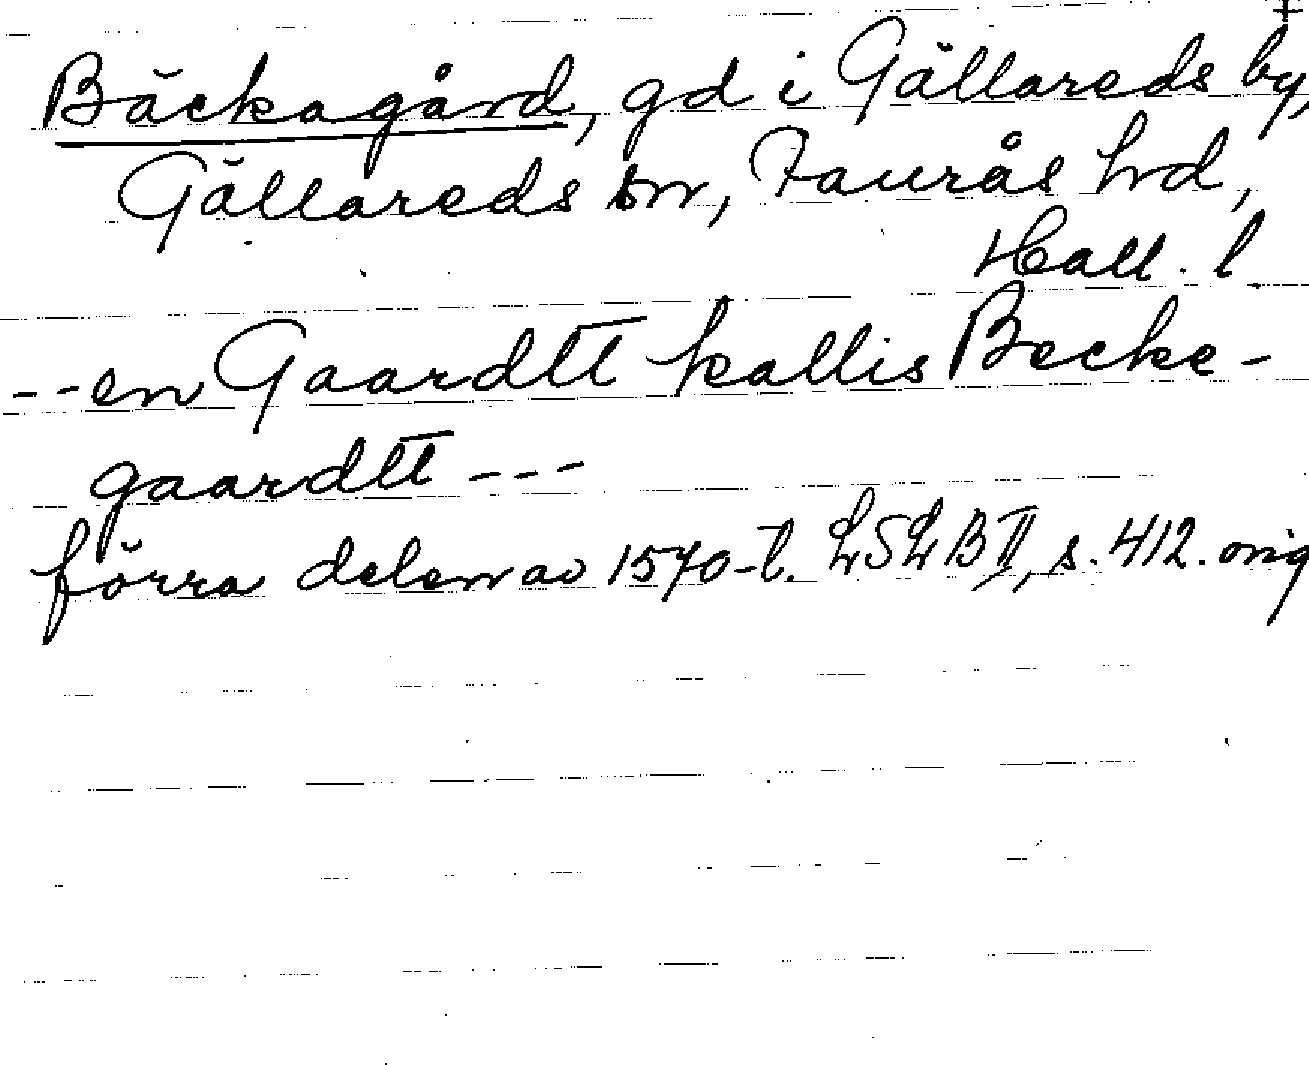 +
Bäckagård, gd i Gällareds by,
Gällareds sn, Faurås hd,
Hall. l
--en Gaardtt kallis Becke-
gaardtt ---
förra delen av 1570-t. LSLB II, s. 412. orig